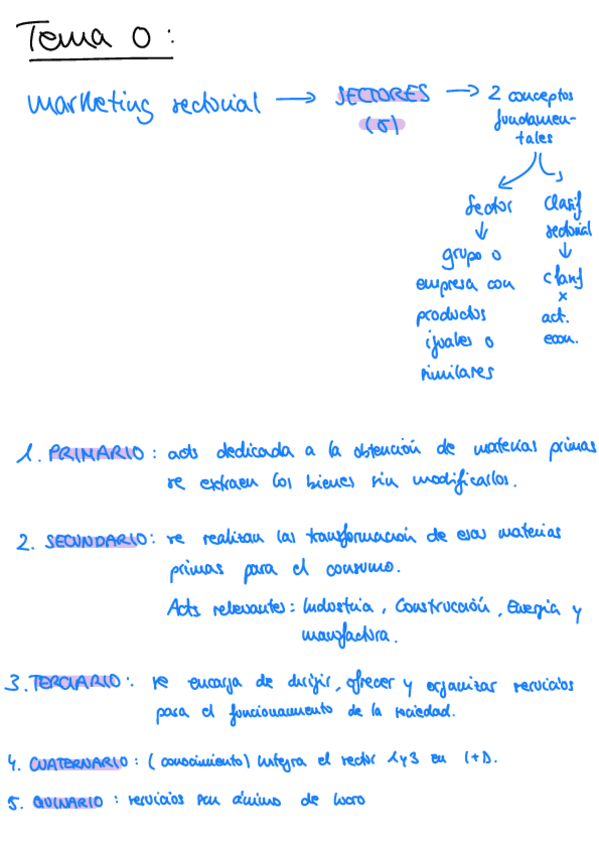 Tema 0:
marketing sectorial → SECTORES → 2 conceptos
(5) fundamen-
tales
Sector Clasif
sectorial
grupo o clasif
empresa con x
productos act.
iguales o econ.
similares
1. PRIMARIO: acts dedicada a la obtención de materias primas
se extraen los bienes sin modificarlos.
2. SECUNDARIO: se realizan las transformación de esas materias
primas para el consumo.
Acts relevantes: Industria, Construcción, Energia y
manufactura.
3. TERCIARIO: se encarga de dirigir, ofrecer y organizar servicios
para el funcionamiento de la sociedad.
4. CUATERNARIO: (conocimiento) integra el sector 1y3 en I+D.
5. QUINARIO: servicios sin ánimo de lucro